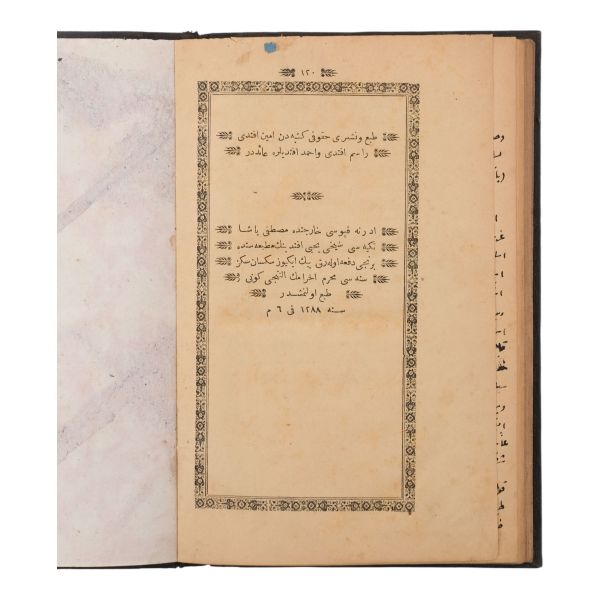 ١٢٠
طبع ونشری حقوقی کتبه دن امین افندی
راسم افندی واحمد افندیلره عائددر
ادرنه قپوسی خارجنده مصطفی پاشا
تکیه سی شیخی یحیی افندینك مطبعه سنده
برنجی دفعه اوله رق بیك ایکیوز سکسان سکز
سنه سی محرم الحرامك التنجی کونی
طبع اولنمشدر
سنه ١٢٨٨ فی ٦ م